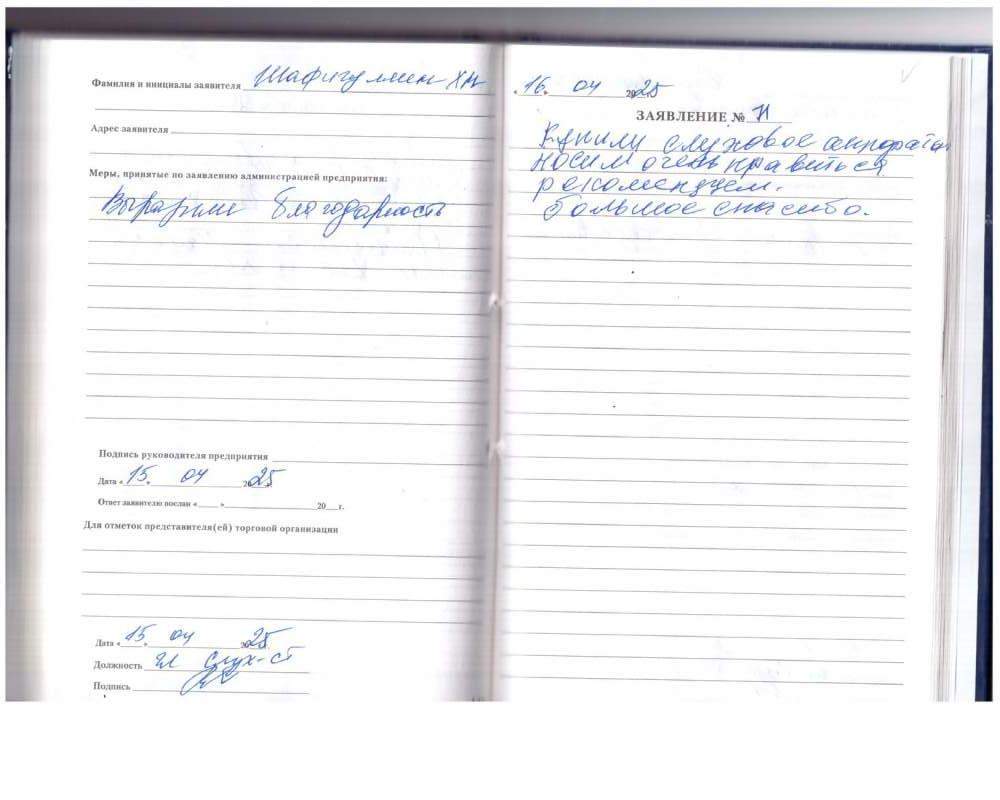 Фамилия и инициалы заявителя Шафигуллин ХН
Адрес заявителя
Меры, принятые по заявлению администрацией предприятия:
Выразили благодарность
Подпись руководителя предприятия
Дата «15» 04 2025 г.
Ответ заявителю послан «____» ____ 20__ г.
Для отметок представителя(ей) торговой организации
Дата «15» 04 2025 г.
Должность гл слух-ст
Подпись
«16» 04 2025
ЗАЯВЛЕНИЕ №
Купили слуховое аппората
носим очень нравиться
рекомендуем.
большое спасибо.